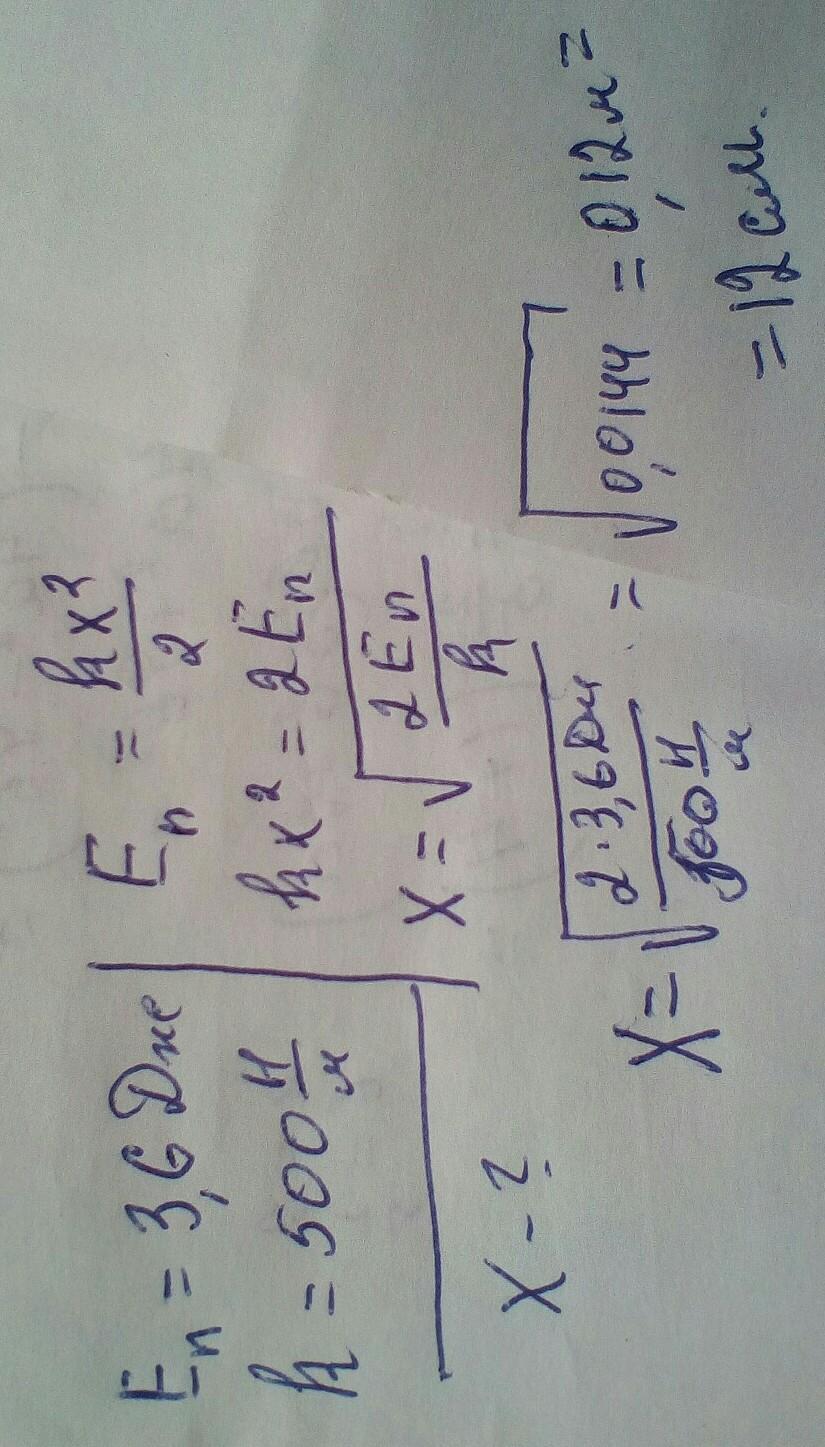 Eп = 3,6 Дже
k = 500 Н/м
x - ?
Eп = kx²/2
kx² = 2Eп
x = √2Eп/k
x = √2·3,6Дж/500 Н/м = √0,0144 = 0,12м =
= 12 см.